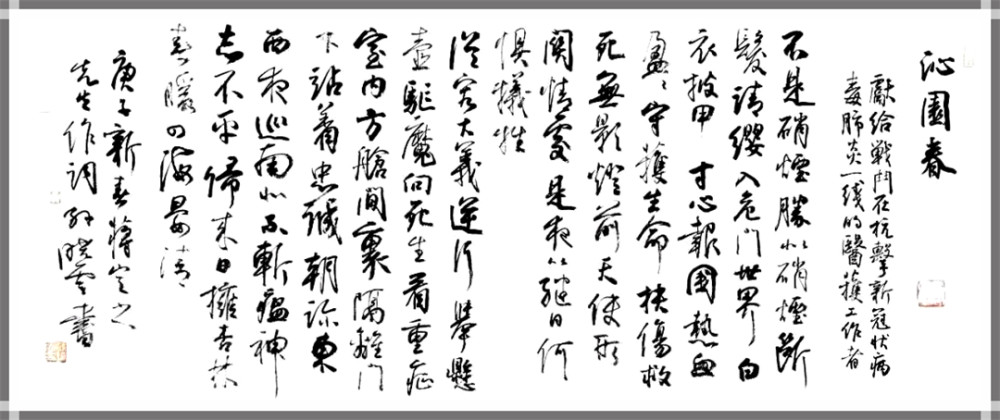 沁園春
獻給戰鬥在抗擊新冠狀病
毒肺炎一线的醫護工作者
不是硝煙勝似硝煙斷
髮請纓入危門世界白
衣披甲寸心報國熱血
盈々守護生命扶傷救
死無影燈前天使形
關情處是夜以繼日何
懼犧牲
從容大義逆行舉懸
壺驅魔向死生看重症
室内方艙間裏隔離門
下站着忠誠朝診東
西夜巡南北不斬瘟神
志不平歸來日擁杏林
春暖四海晏清
庚子新春蔣定之
先生作詞孫曉雲書